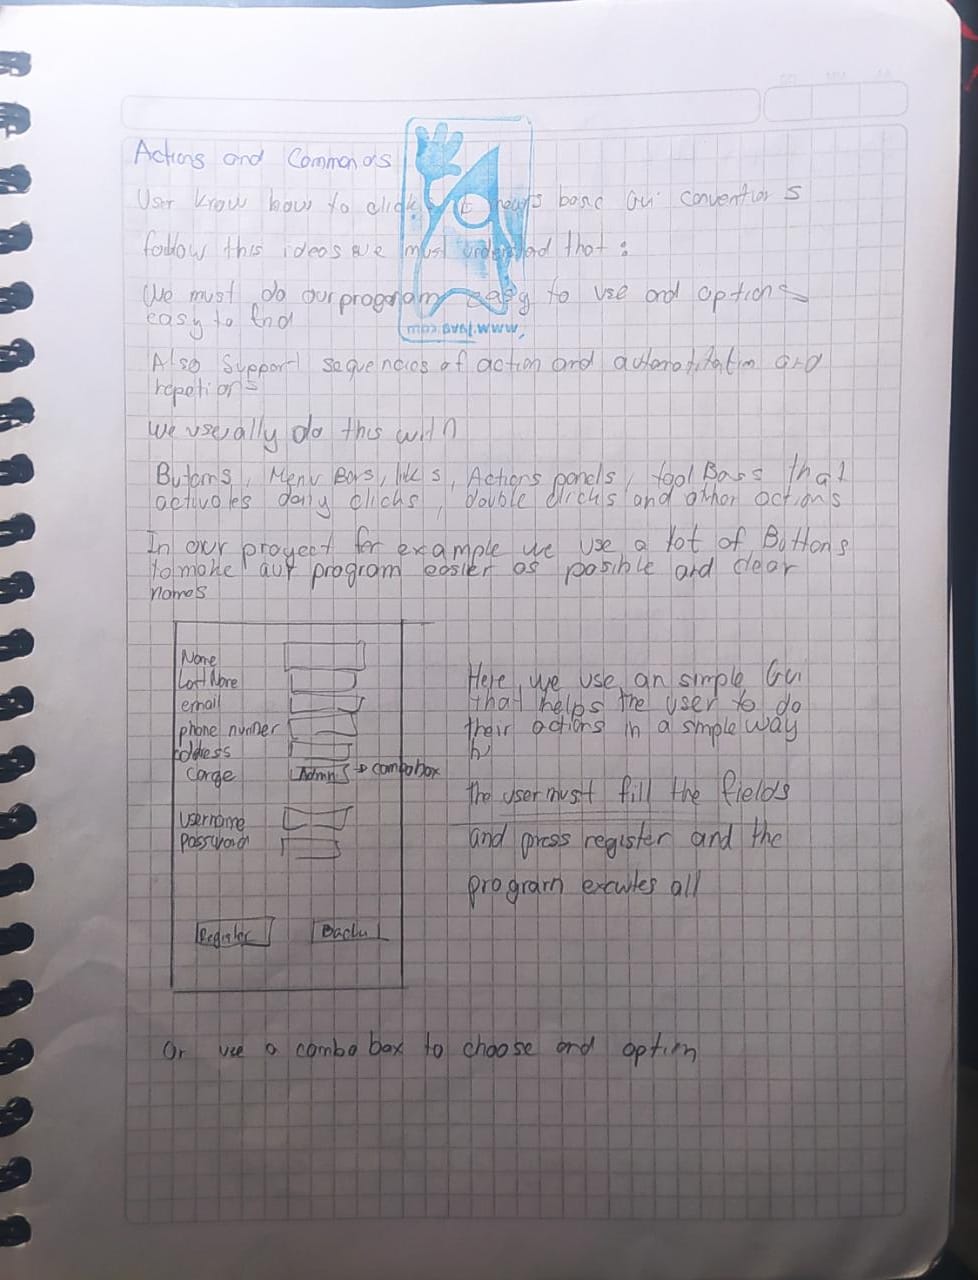 Actions and Commands
User know how to click, it means basic Gui conventions
follow this ideas we must understad that :
We must do our progoram easy to use and options
easy to find
Also support sequencies of action and and
repetions
We usually do this with
Butoms, Menu Bars, links, Actions panels, tool Bars that
activates daily clicks, double clicks and other actions
In our proyect for example we use a lot of Buttons
to make our program easier as posible and clear
names
Name
Last Name
email
phone numer
address
Carge Admin → combobox
username
Password
Register Back
Here we use an simple Gui
that helps the user to do
their actions in a simple way
the user must fill the fields
and press register and the
program excutes all
Or use a combo box to choose and option
www.java.com